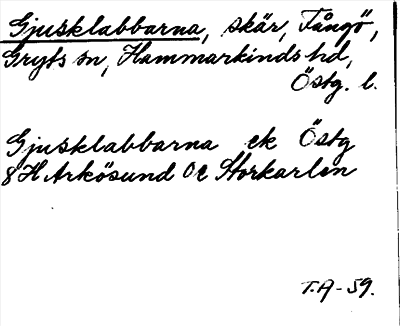 Gjusklabbarna, skär, Fångö,
Gryts sn, Hammarkinds hd,
Östg. l.
Gjusklabbarna ek Östg
8H Arkösund 0e Storkarlen
T.A-59.